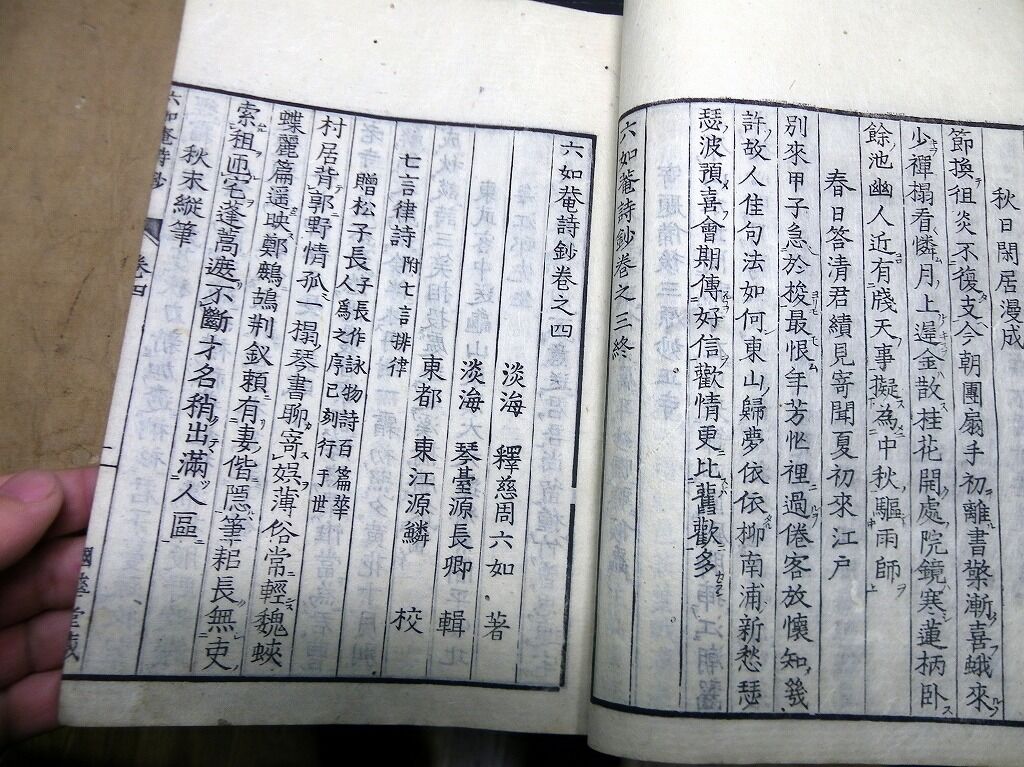 秋日閑居漫成
節換徂炎不復支今朝團扇手初離書檠漸喜蛾來
少禪榻看憐月上遲金散桂花開處院鏡寒蓮柄卧
餘池幽人近有牋天事擬為中秋驅雨師
春日答清君績見寄聞夏初來江戸
別來甲子急於梭最恨年芳忙裡過倦客放懷知幾
許故人佳句法如何東山歸夢依依柳南浦新愁瑟
瑟波預喜會期傳好信歡情更比舊歡多
六如菴詩鈔巻之三終
六如菴詩鈔巻之四
淡海 釋慈周六如 著
淡海 琴臺源長卿 輯
東都 東江源鱗 校
七言律詩 附七言排律
贈松子長 子長作詠物詩百篇華人為之序已刻行于世
村居背郭野情孤一榻琴書聊寄娯薄俗常輕魏蛺
蝶麗篇遥映鄭鷓鴣荆釵頼有妻偕隠筆耜長無吏
索租匝宅蓬蒿遮不斷才名稍出滿人區
秋末縦筆
六如菴詩鈔 巻四 一